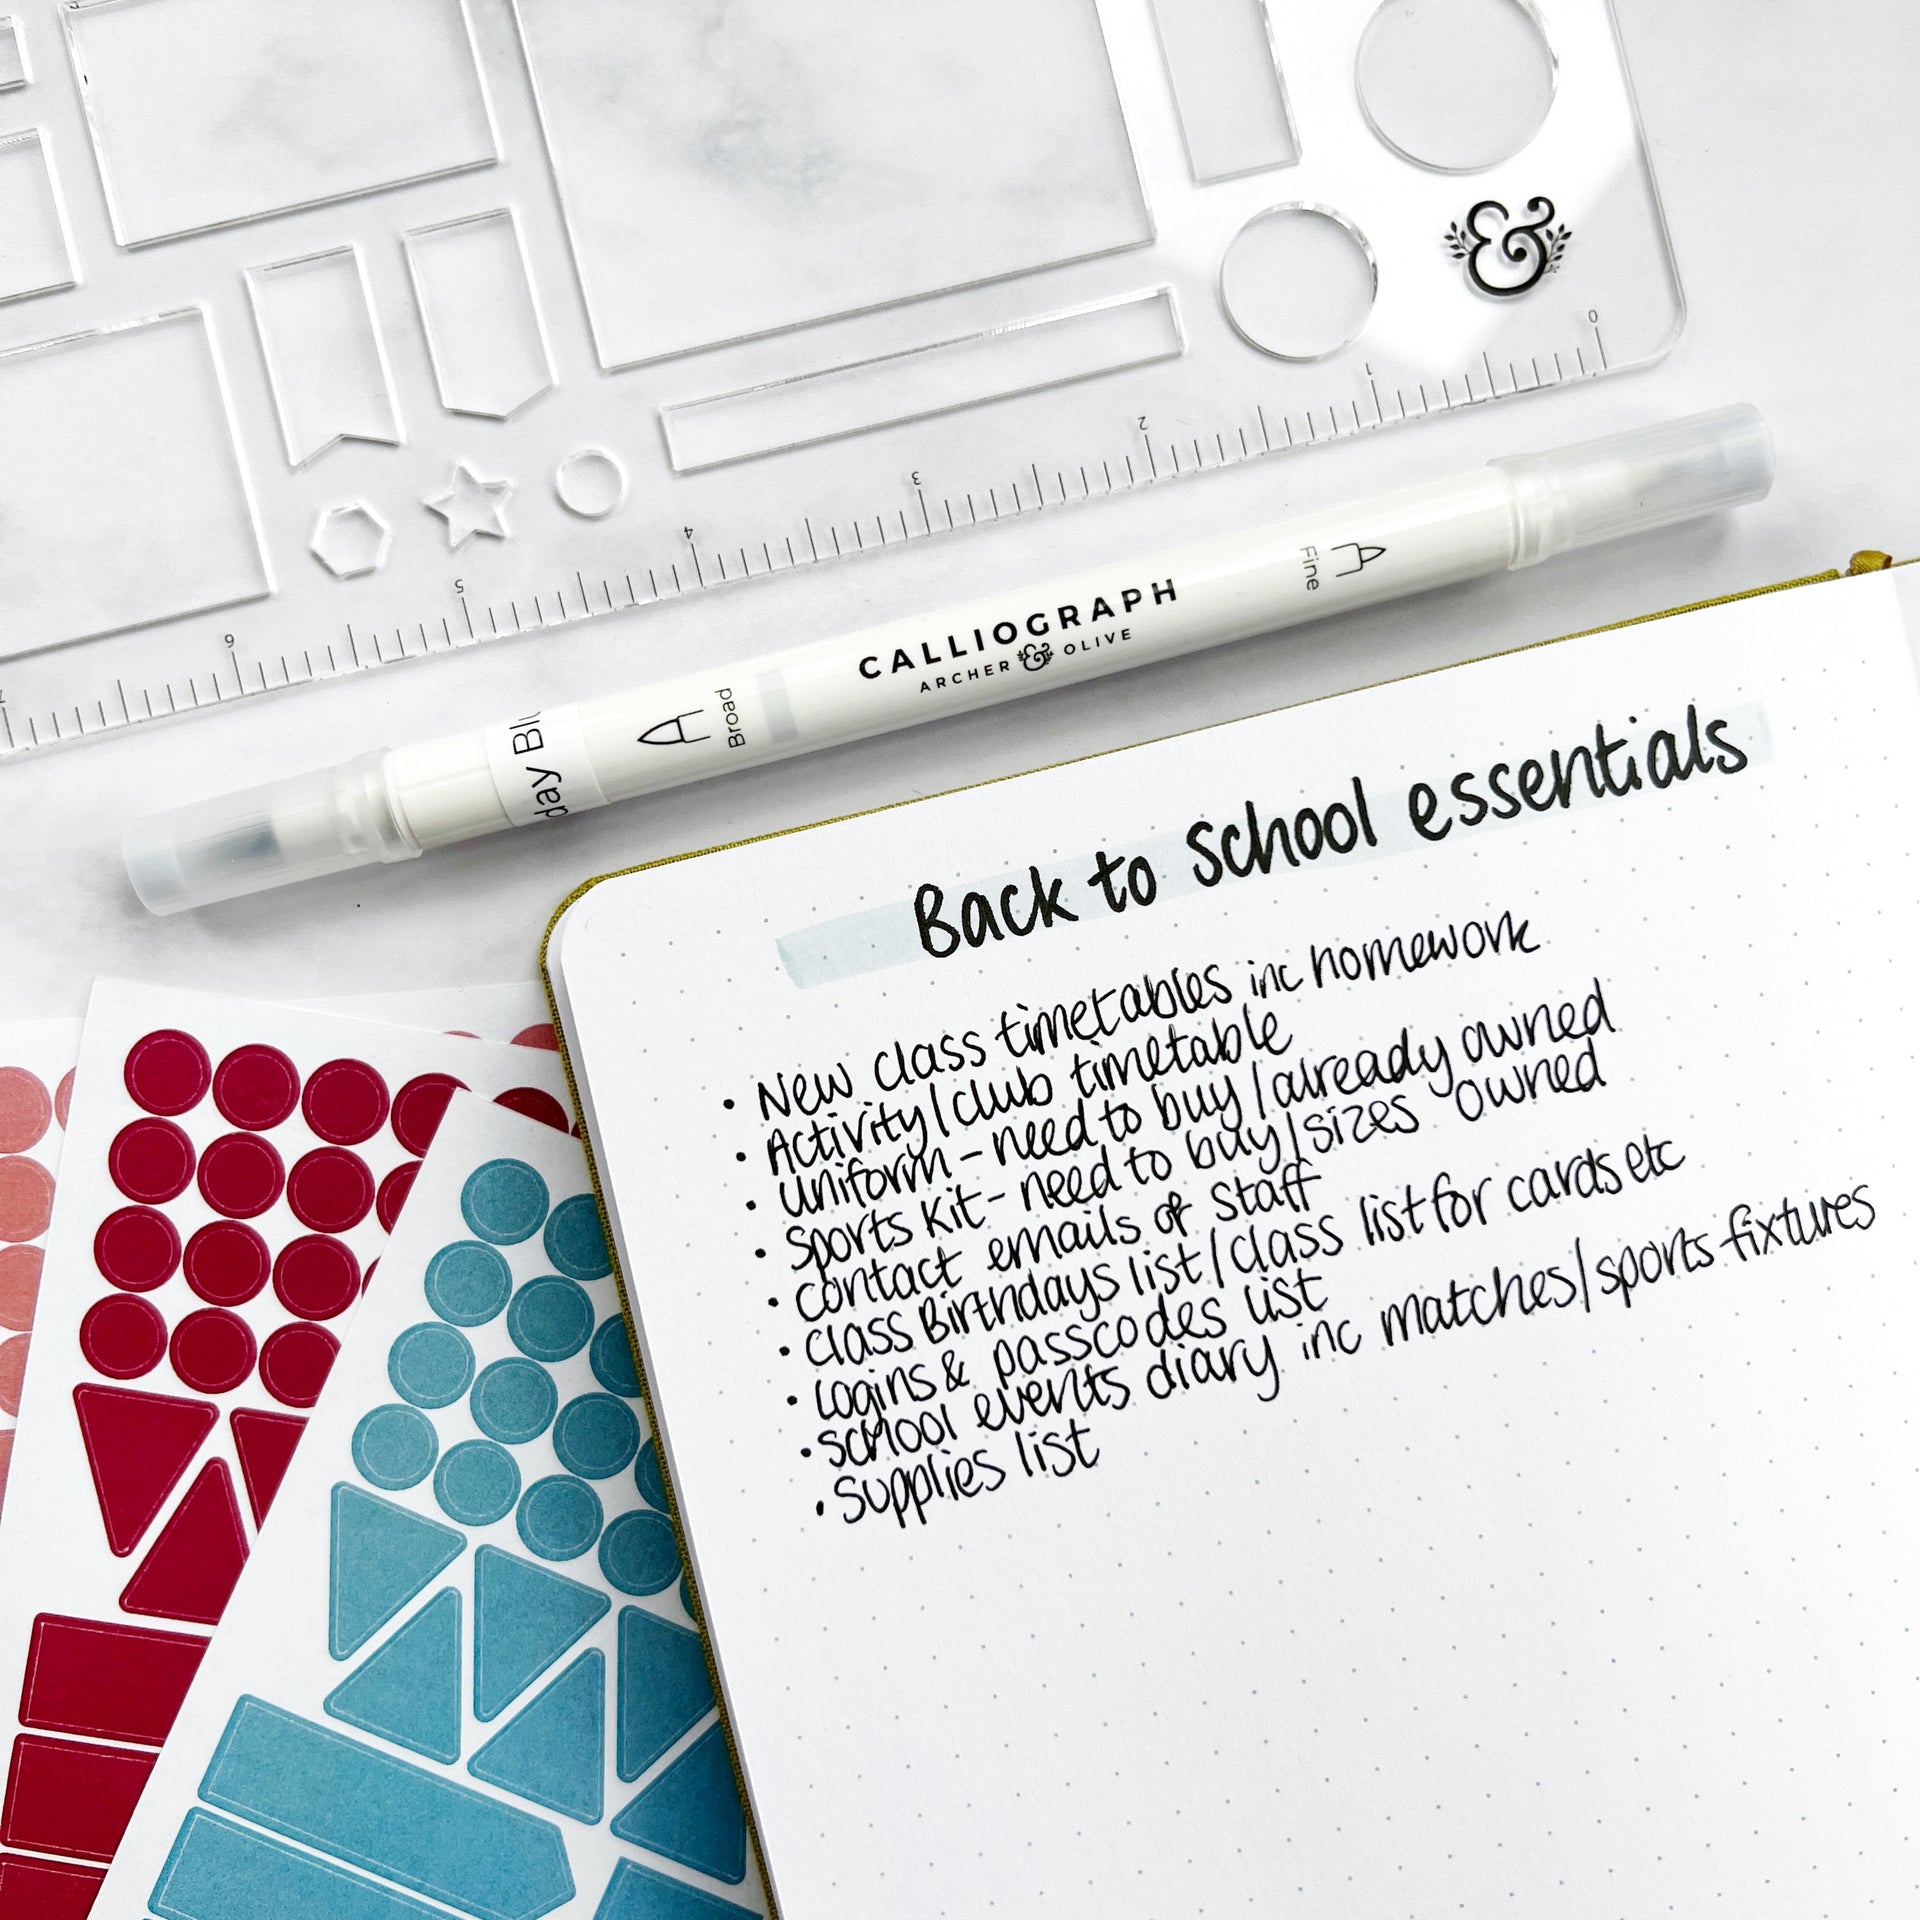 &
0
1
2
3
4
5
6
7
Fine
CALLIOGRAPH
ARCHER & OLIVE
Broad
day Blu
Back to school essentials
• New class timetables inc homework
• Activity/club timetable
• Uniform - need to buy/already owned
• Sports Kit - need to buy/sizes owned
• contact emails of staff
• Class Birthdays list/class list for cards etc
• Logins & passcodes list
• School events diary inc matches/sports fixtures
• Supplies list